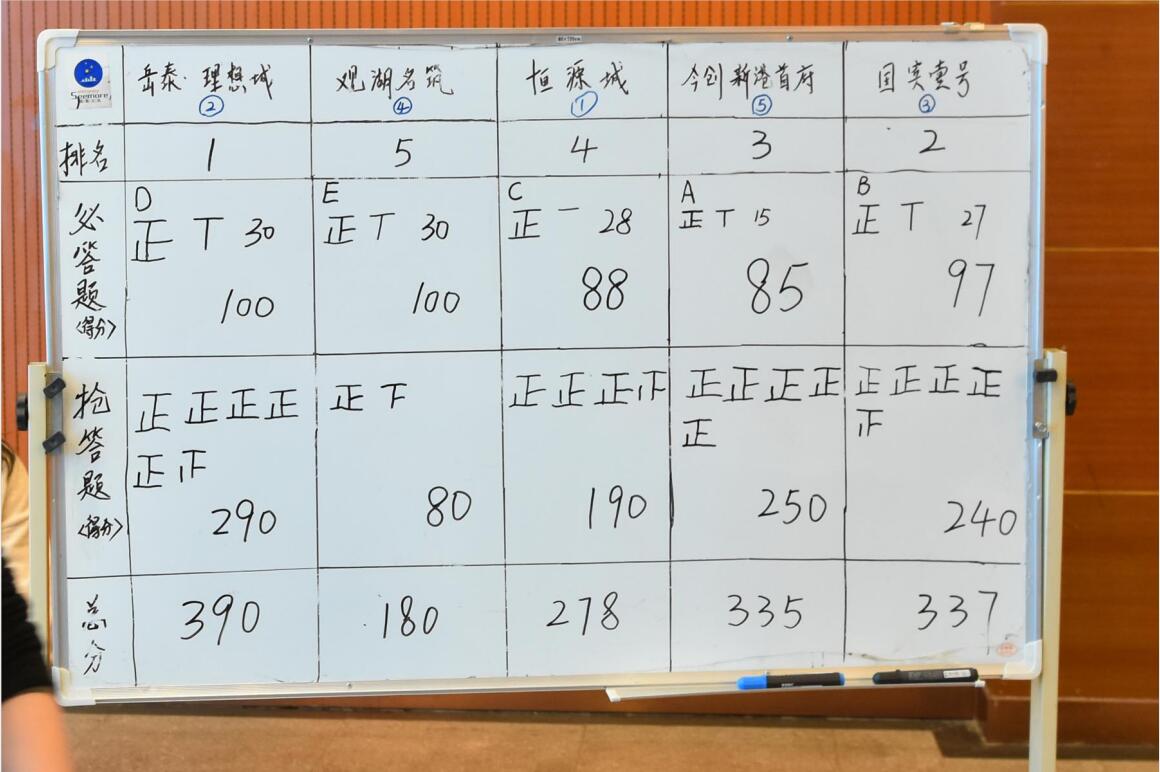 Seemore
岳泰·理想城 观湖名筑 恒源城 今创新港首府 国宾壹号
② ④ ① ⑤ ③
排名 1 5 4 3 2
必答题<得分>
D E C A B
正 丅 30 正 丅 30 正 一 28 正 丅 15 正 丅 27
100 100 88 85 97
抢答题<得分>
正 正 正 正 正 下 正 正 正 正 正 正 正 正 正 正 正 正
正 正 正 正
290 80 190 250 240
总分 390 180 278 335 337